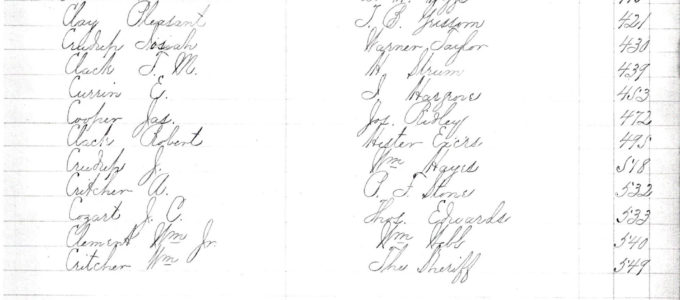 Clay Pleasant T. B. Grissom 421
Crudup Josiah Warner Taylor 430
Clack T. M. W Strum 439
Currin E. J Hargrove 453
Cooper Jas. Jos. Ridley 472
Clack Robert Hester Excrs 495
Crudup J. Wm Hayes 518
Critcher A. P. F. Stone 532
Cozart J. C. Thos. Edwards 533
Clement Wm Jr. Wm Webb 540
Critcher Wm The Sheriff 549